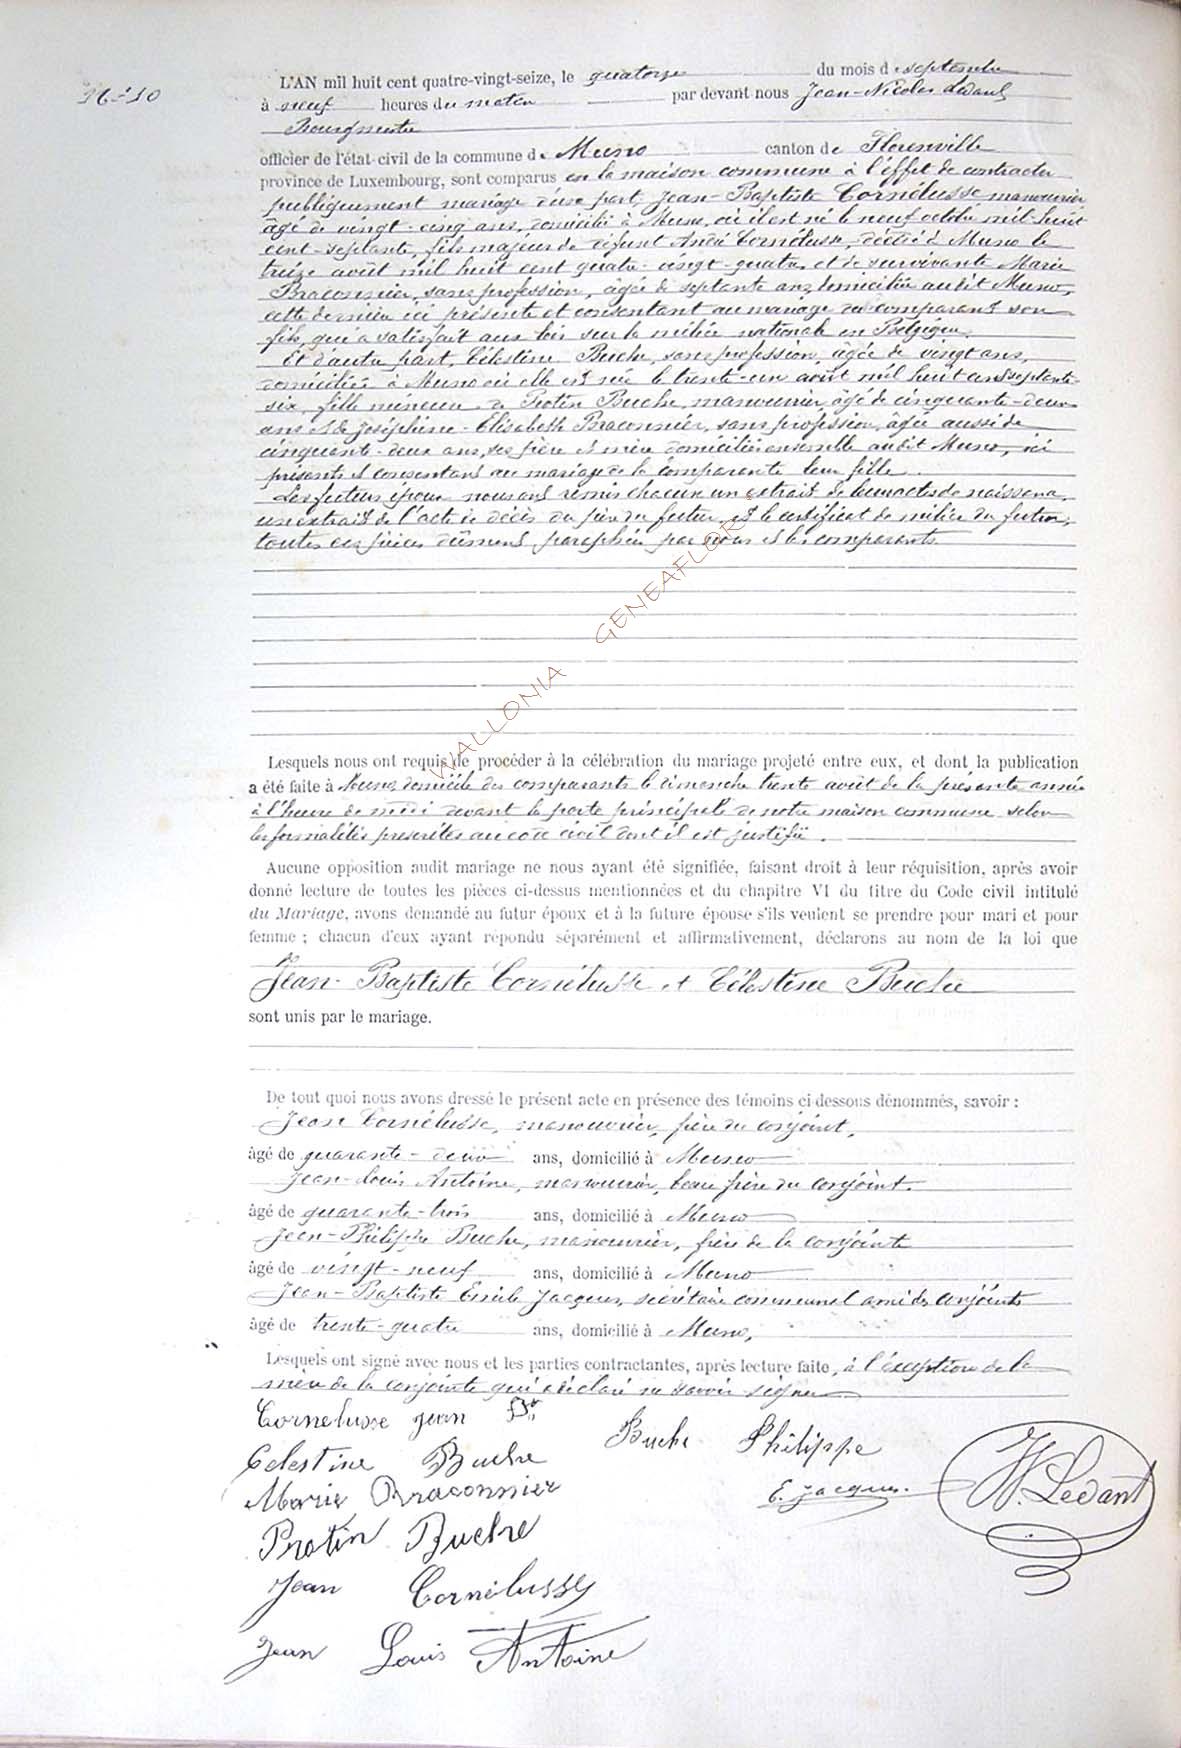 96-10
L'AN mil huit cent quatre-vingt-seize, le quatorze du mois de septembre
à neuf heures du matin par devant nous Jean-Nicolas Ledant
Bourgmestre
officier de l'état civil de la commune de Muno canton de Florenville
province de Luxembourg, sont comparus en la maison commune à l'effet de contracter
publiquement mariage d'une part, Jean-Baptiste Cornélusse manouvrier
âgé de vingt-cinq ans, domicilié à Muno, où il est né le neuf octobre mil huit
cent septante, fils majeur de défunt André Cornélusse, décédé à Muno le
treize août mil huit cent quatre-vingt-quatre et de survivante Marie
Braconnier, sans profession, âgée de septante ans, domiciliée audit Muno,
cette dernière ici présente et consentant au mariage du comparant son
fils, qui a satisfait aux lois sur la milice nationale en Belgique.
Et d'autre part, Célestine Buche, sans profession, âgée de vingt ans,
domiciliée à Muno où elle est née le trente-un août mil huit cent septante
six, fille mineure de Protin Buche, manouvrier, âgé de cinquante-deux
ans et de Joséphine-Elisabeth Braconnier, sans profession, âgée aussi de
cinquante-deux ans, ses père et mère domiciliés ensemble audit Muno, ici
présents et consentant au mariage de la comparante leur fille.
Les futurs époux nous ont remis chacun un extrait de leur actes de naissance,
un extrait de l'acte de décès du père du futur, et le certificat de milice du futur,
toutes ces pièces dûment paraphées par nous et les comparants.
WALLONIA GENEAFLOR
Lesquels nous ont requis de procéder à la célébration du mariage projeté entre eux, et dont la publication
a été faite à Muno domicile des comparants le dimanche trente août de la présente année
à l'heure de midi devant la porte principale de notre maison commune selon
les formalités prescrites au code civil dont il est justifié.
Aucune opposition audit mariage ne nous ayant été signifiée, faisant droit à leur réquisition, après avoir
donné lecture de toutes les pièces ci-dessus mentionnées et du chapitre VI du titre du Code civil intitulé
du Mariage, avons demandé au futur époux et à la future épouse s'ils veulent se prendre pour mari et pour
femme ; chacun d'eux ayant répondu séparément et affirmativement, déclarons au nom de la loi que
Jean-Baptiste Cornélusse et Célestine Buche
sont unis par le mariage.
De tout quoi nous avons dressé le présent acte en présence des témoins ci-dessous dénommés, savoir :
Jean Cornélusse, manouvrier, frère du conjoint,
âgé de quarante-deux ans, domicilié à Muno
Jean-Louis Antoine, manouvrier, beau frère du conjoint.
âgé de quarante-trois ans, domicilié à Muno
Jean-Philippe Buche, manouvrier, frère de la conjointe
âgé de vingt-neuf ans, domicilié à Muno
Jean-Baptiste Emile Jacques, secrétaire communal ami des conjoints
âgé de trente-quatre ans, domicilié à Muno,
Lesquels ont signé avec nous et les parties contractantes, après lecture faite, à l'exception de la
mère de la conjointe qui a déclaré ne savoir signer.
Cornelusse jean Bte
Buche Philippe
Celestine Buche
E. Jacques.
N. Ledant
Marie Braconnier
Protin Buche
Jean Cornelussy
Jean Louis Antoine